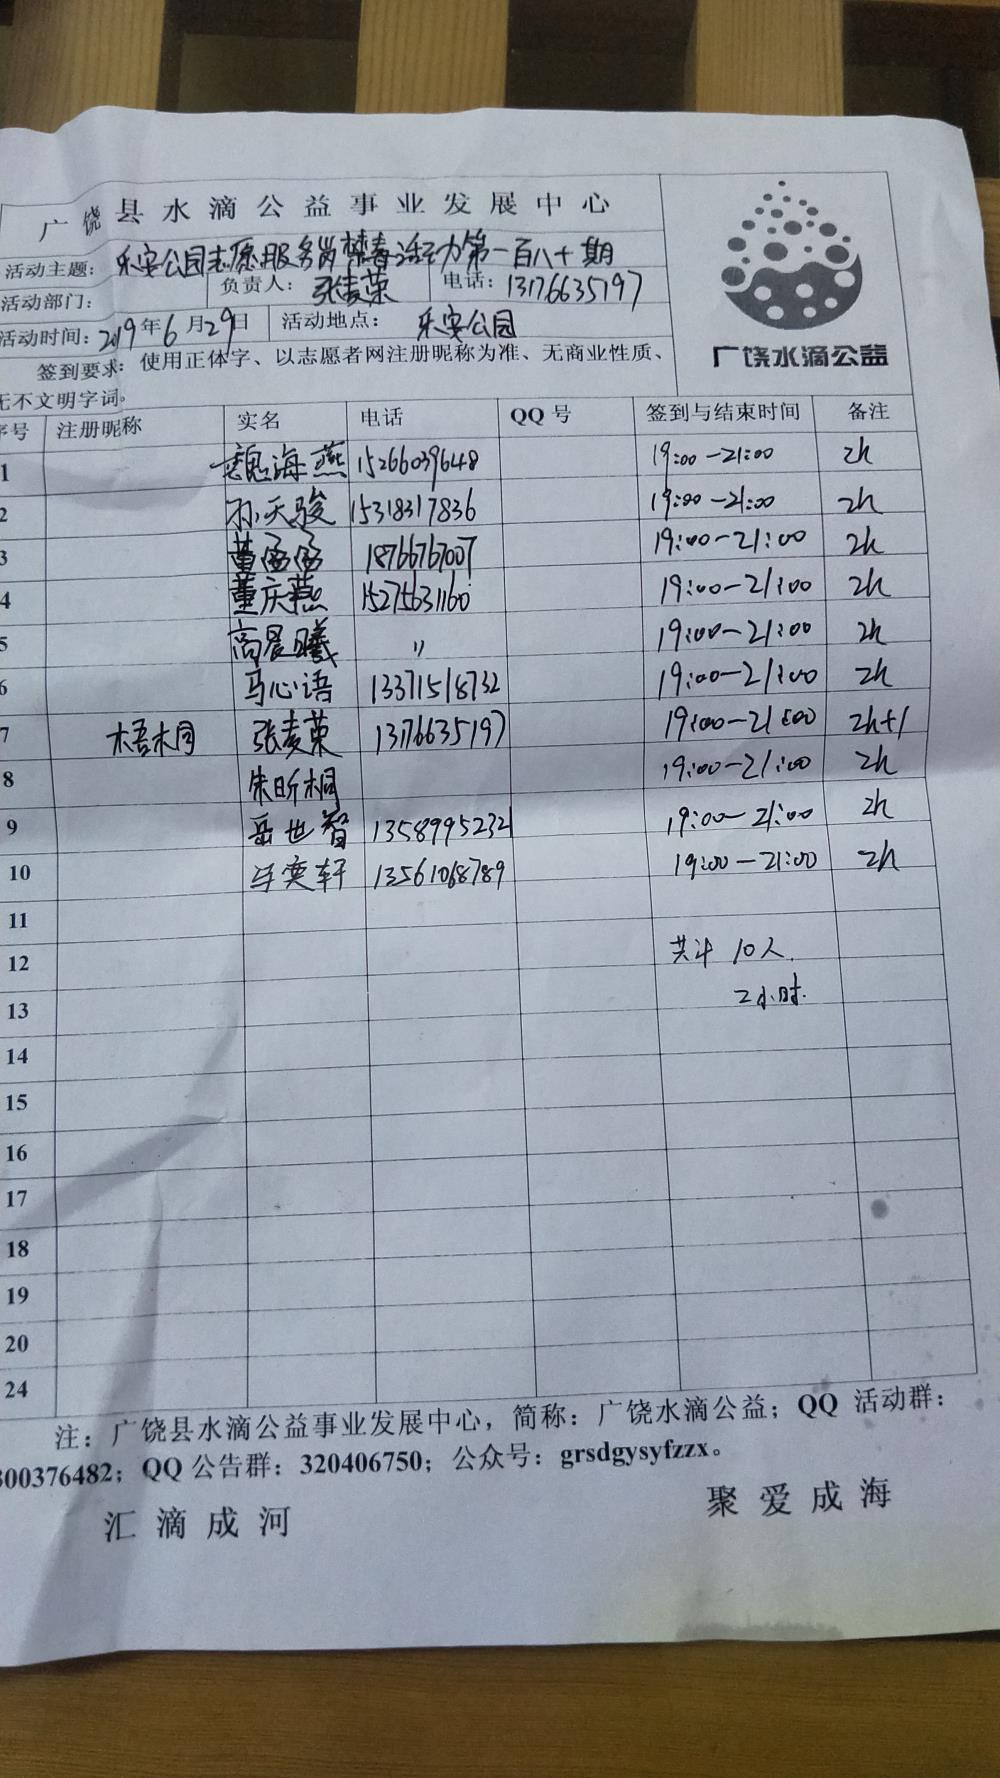 广饶县水滴公益事业发展中心
广饶水滴公益
活动主题: 乐安公园志愿服务岗禁毒活动第一百八十期
活动部门: 负责人: 张麦荣 电话: 13176635197
活动时间: 2019年6月29日 活动地点: 乐安公园
签到要求: 使用正体字、以志愿者网注册昵称为准、无商业性质、
无不文明字词。
序号 注册昵称 实名 电话 QQ号 签到与结束时间 备注
1 魏海燕 15266039648 19:00-21:00 2h
2 孙天骏 15318317836 19:00-21:00 2h
3 董孟孟 18766767007 19:00-21:00 2h
4 董庆燕 15275631160 19:00-21:00 2h
5 高晨曦 〃 19:00-21:00 2h
6 马心语 13371518732 19:00-21:00 2h
7 梧桐 张麦荣 13176635197 19:00-21:00 2h+1
8 朱昕桐 19:00-21:00 2h
9 岳世智 13589995232 19:00-21:00 2h
10 奕轩 13561068789 19:00-21:00 2h
11
12 共计 10人.
13 2小时.
14
15
16
17
18
19
20
24
注: 广饶县水滴公益事业发展中心, 简称: 广饶水滴公益; QQ 活动群:
300376482; QQ公告群: 320406750; 公众号: grsdgysyfzzx。
汇滴成河 聚爱成海